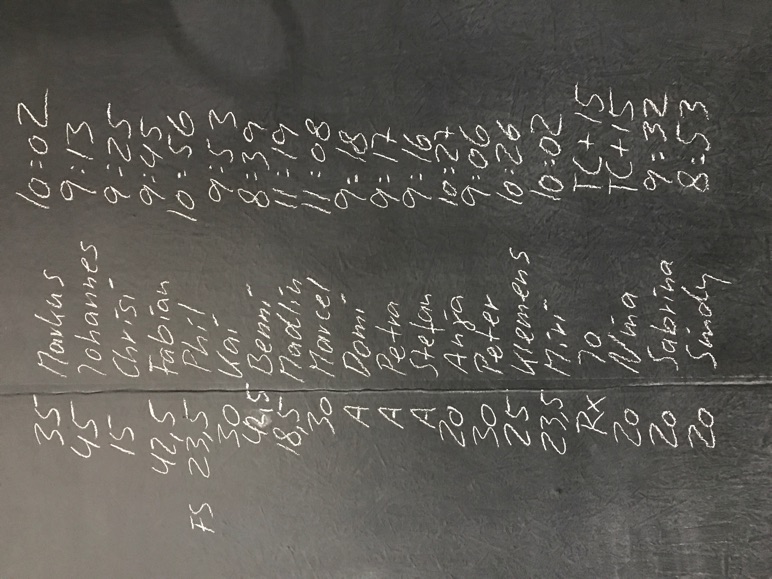 35 Markus 10:02
45 Johannes 9:13
15 Chrisi 9:25
42,5 Fabian 9:45
FS 23,5 Phil 10:56
30 Kai 9:53
42,5 Benni 8:39
18,5 Madlin 11:19
30 Marcel 11:08
A Domi 9:18
A Petra 9:17
A Stefan 9:16
20 Anja 10:27
30 Peter 9:06
25 Klemens 10:26
23,5 Miri 10:02
RX Jo TC+15
20 Nina TC+15
20 Sabrina 9:32
20 Sindy 8:53